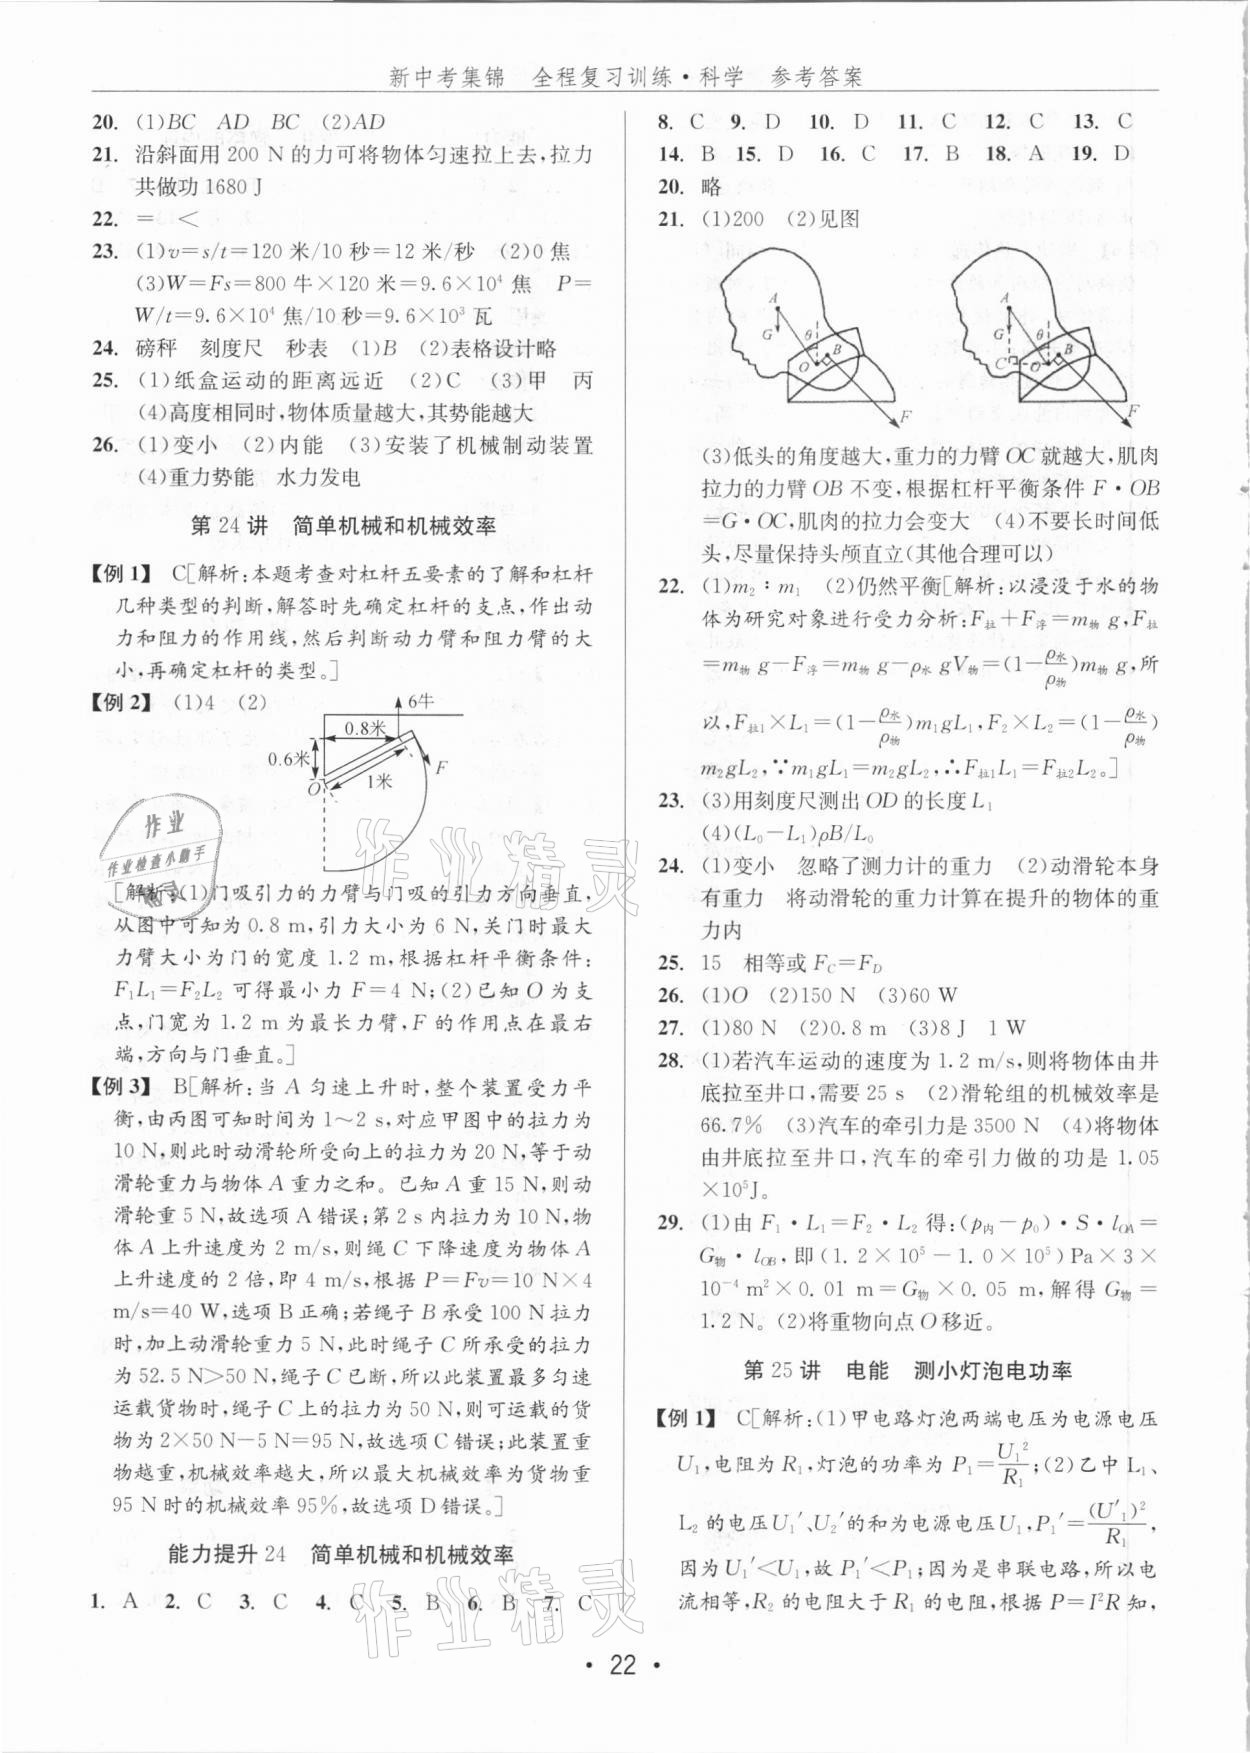 新中考集锦 全程复习训练·科学 参考答案
20. (1)BC AD BC (2)AD
21. 沿斜面用 200 N 的力可将物体匀速拉上去,拉力
共做功 1680 J
22. = <
23. (1)v=s/t=120 米/10 秒=12 米/秒 (2)0 焦
(3)W=Fs=800 牛×120 米=9.6×10⁴ 焦 P=
W/t=9.6×10⁴ 焦/10 秒=9.6×10³ 瓦
24. 磅秤 刻度尺 秒表 (1)B (2)表格设计略
25. (1)纸盒运动的距离远近 (2)C (3)甲 丙
(4)高度相同时,物体质量越大,其势能越大
26. (1)变小 (2)内能 (3)安装了机械制动装置
(4)重力势能 水力发电
第 24 讲 简单机械和机械效率
【例 1】 C[解析:本题考查对杠杆五要素的了解和杠杆
几种类型的判断,解答时先确定杠杆的支点,作出动
力和阻力的作用线,然后判断动力臂和阻力臂的大
小,再确定杠杆的类型。]
【例 2】 (1)4 (2)
6牛
0.8米
0.6米
F
O
1米
[解析:(1)门吸引力的力臂与门吸的引力方向垂直,
从图中可知为 0.8 m,引力大小为 6 N,关门时最大
力臂大小为门的宽度 1.2 m,根据杠杆平衡条件:
F₁L₁=F₂L₂ 可得最小力 F=4 N;(2)已知 O 为支
点,门宽为 1.2 m 为最长力臂,F 的作用点在最右
端,方向与门垂直。]
【例 3】 B[解析:当 A 匀速上升时,整个装置受力平
衡,由丙图可知时间为 1~2 s,对应甲图中的拉力为
10 N,则此时动滑轮所受向上的拉力为 20 N,等于动
滑轮重力与物体 A 重力之和。已知 A 重 15 N,则动
滑轮重 5 N,故选项 A 错误;第 2 s 内拉力为 10 N,物
体 A 上升速度为 2 m/s,则绳 C 下降速度为物体 A
上升速度的 2 倍,即 4 m/s,根据 P=Fv=10 N×4
m/s=40 W,选项 B 正确;若绳子 B 承受 100 N 拉力
时,加上动滑轮重力 5 N,此时绳子 C 所承受的拉力
为 52.5 N>50 N,绳子 C 会断,所以该装置最多匀速
运载货物时,绳子 C 上的拉力为 50 N,则可运载的货
物为 2×50 N-5 N=95 N,故选项 C 错误;此装置重
物越重,机械效率越大,所以最大机械效率为货物重
95 N 时的机械效率 95%,故选项 D 错误。]
能力提升 24 简单机械和机械效率
1. A 2. C 3. C 4. C 5. B 6. B 7. C
8. C 9. D 10. D 11. C 12. C 13. C
14. B 15. D 16. C 17. B 18. A 19. D
20. 略
21. (1)200 (2)见图
A
G
θ
B
O
F
A
G
θ
B
C
O
F
(3)低头的角度越大,重力的力臂 OC 就越大,肌肉
拉力的力臂 OB 不变,根据杠杆平衡条件 F·OB
=G·OC,肌肉的拉力会变大 (4)不要长时间低
头,尽量保持头颅直立(其他合理可以)
22. (1)m₂∶m₁ (2)仍然平衡[解析:以浸没于水的物
体为研究对象进行受力分析:F拉+F浮=m物 g,F拉
=m物 g-F浮=m物 g-ρ水 gV物=(1-ρ水/ρ物)m物 g,所
以,F拉1×L₁=(1-ρ水/ρ物)m₁gL₁,F₂×L₂=(1-ρ水/ρ物)
m₂gL₂,∵m₁gL₁=m₂gL₂,∴F拉1L₁=F拉2L₂。]
23. (3)用刻度尺测出 OD 的长度 L₁
(4)(L₀-L₁)ρB/L₀
24. (1)变小 忽略了测力计的重力 (2)动滑轮本身
有重力 将动滑轮的重力计算在提升的物体的重
力内
25. 15 相等或 F_C=F_D
26. (1)O (2)150 N (3)60 W
27. (1)80 N (2)0.8 m (3)8 J 1 W
28. (1)若汽车运动的速度为 1.2 m/s,则将物体由井
底拉至井口,需要 25 s (2)滑轮组的机械效率是
66.7% (3)汽车的牵引力是 3500 N (4)将物体
由井底拉至井口,汽车的牵引力做的功是 1.05
×10⁵J。
29. (1)由 F₁·L₁=F₂·L₂ 得:(p内-p₀)·S·l_OA=
G物·l_OB,即(1.2×10⁵-1.0×10⁵)Pa×3×
10⁻⁴ m²×0.01 m=G物×0.05 m,解得 G物=
1.2 N。(2)将重物向点 O 移近。
第 25 讲 电能 测小灯泡电功率
【例 1】 C[解析:(1)甲电路灯泡两端电压为电源电压
U₁,电阻为 R₁,灯泡的功率为 P₁=U₁²/R₁;(2)乙中 L₁、
L₂ 的电压 U₁′、U₂′的和为电源电压 U₁,P₁′=(U′₁)²/R₁,
因为 U₁′<U₁,故 P₁′<P₁;因为是串联电路,所以电
流相等,R₂ 的电阻大于 R₁ 的电阻,根据 P=I²R 知,
· 22 ·
作业
作业检查小助手
作业精灵
作业精灵